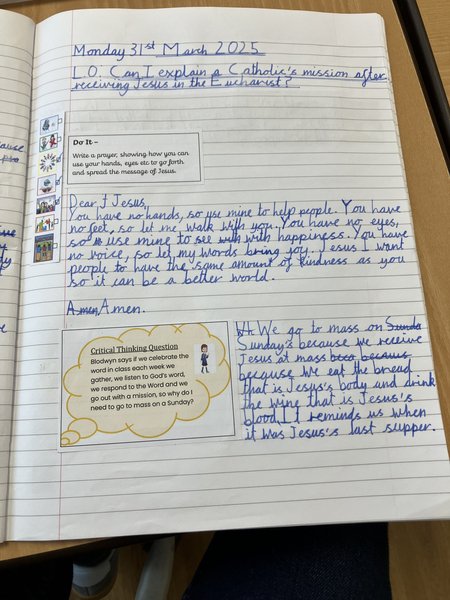 Monday 31st March 2025
L.O: Can I explain a Catholic's mission after
receiving Jesus in the Eucharist?
Do It –
Write a prayer, showing how you can
use your hands, eyes etc to go forth
and spread the message of Jesus.
Dear Jesus,
You have no hands, so use mine to help people. You have
no feet, so let me walk with you. You have no eyes,
so use mine to see with happiness. You have
no voice, so let my words bring joy. Jesus I want
people to have the same amount of kindness as you
so it can be a better world.
Amen, Amen.
Critical Thinking Question
Blodwyn says if we celebrate the
word in class each week we
gather, we listen to God's word,
we respond to the Word and we
go out with a mission, so why do I
need to go to mass on a Sunday?
Wh We go to mass on Sunda
Sunday's because we receive
Jesus at mass becas because
because we eat the bread
that is Jesus's body and drink
the wine that is Jesus's
blood. It reminds us when
it was Jesus's last supper.